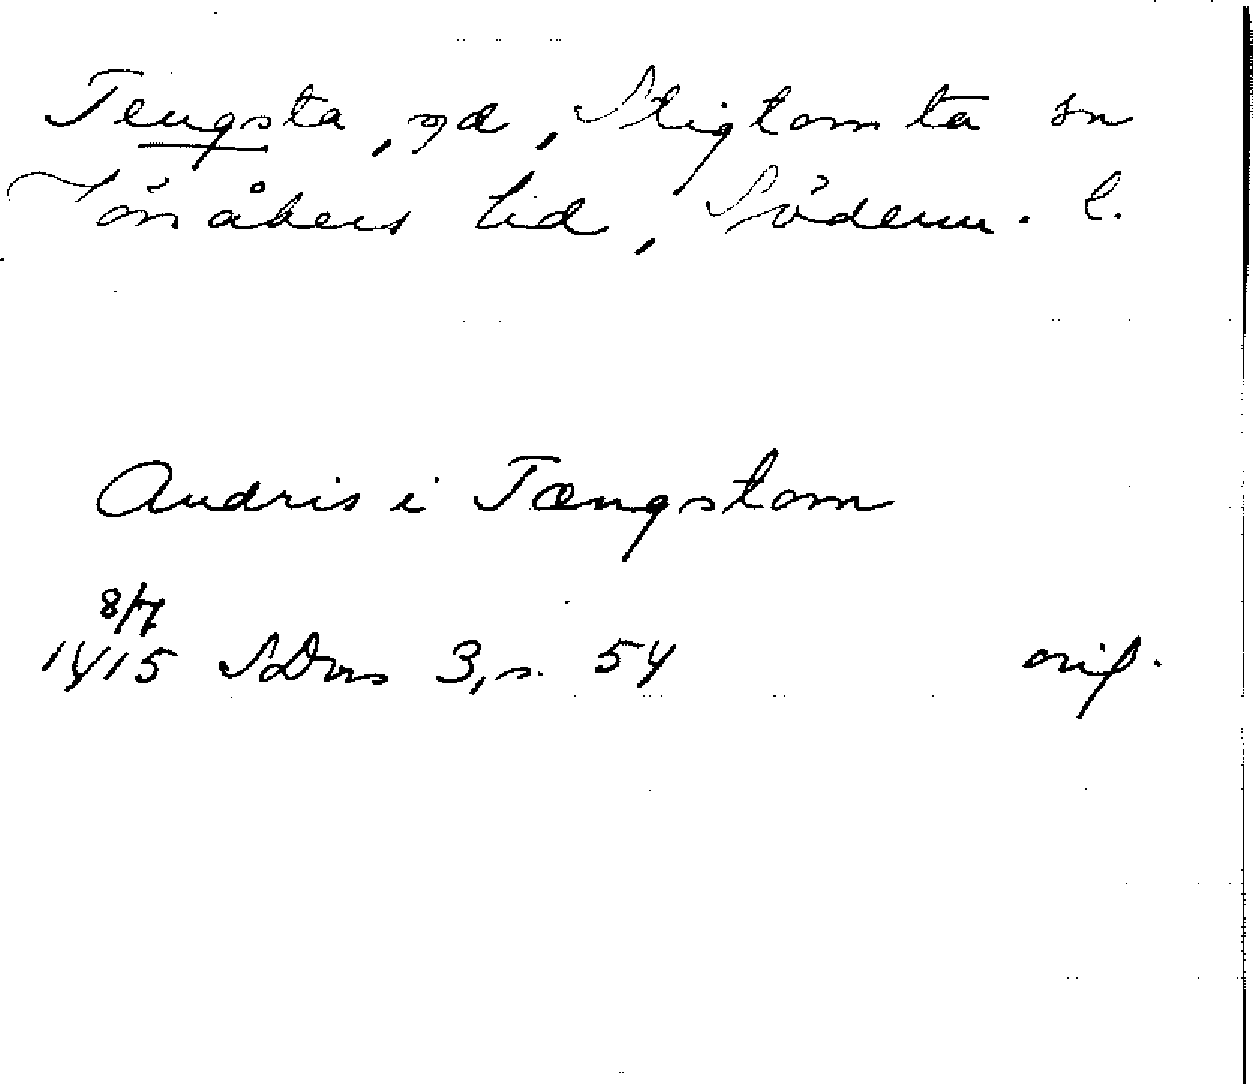 Tengsta, gd, Stigtomta sn
Jönåkers hd, Söderm. l.
Andris i Tængstom
8/7
1415 SDns 3, s. 54 orig.